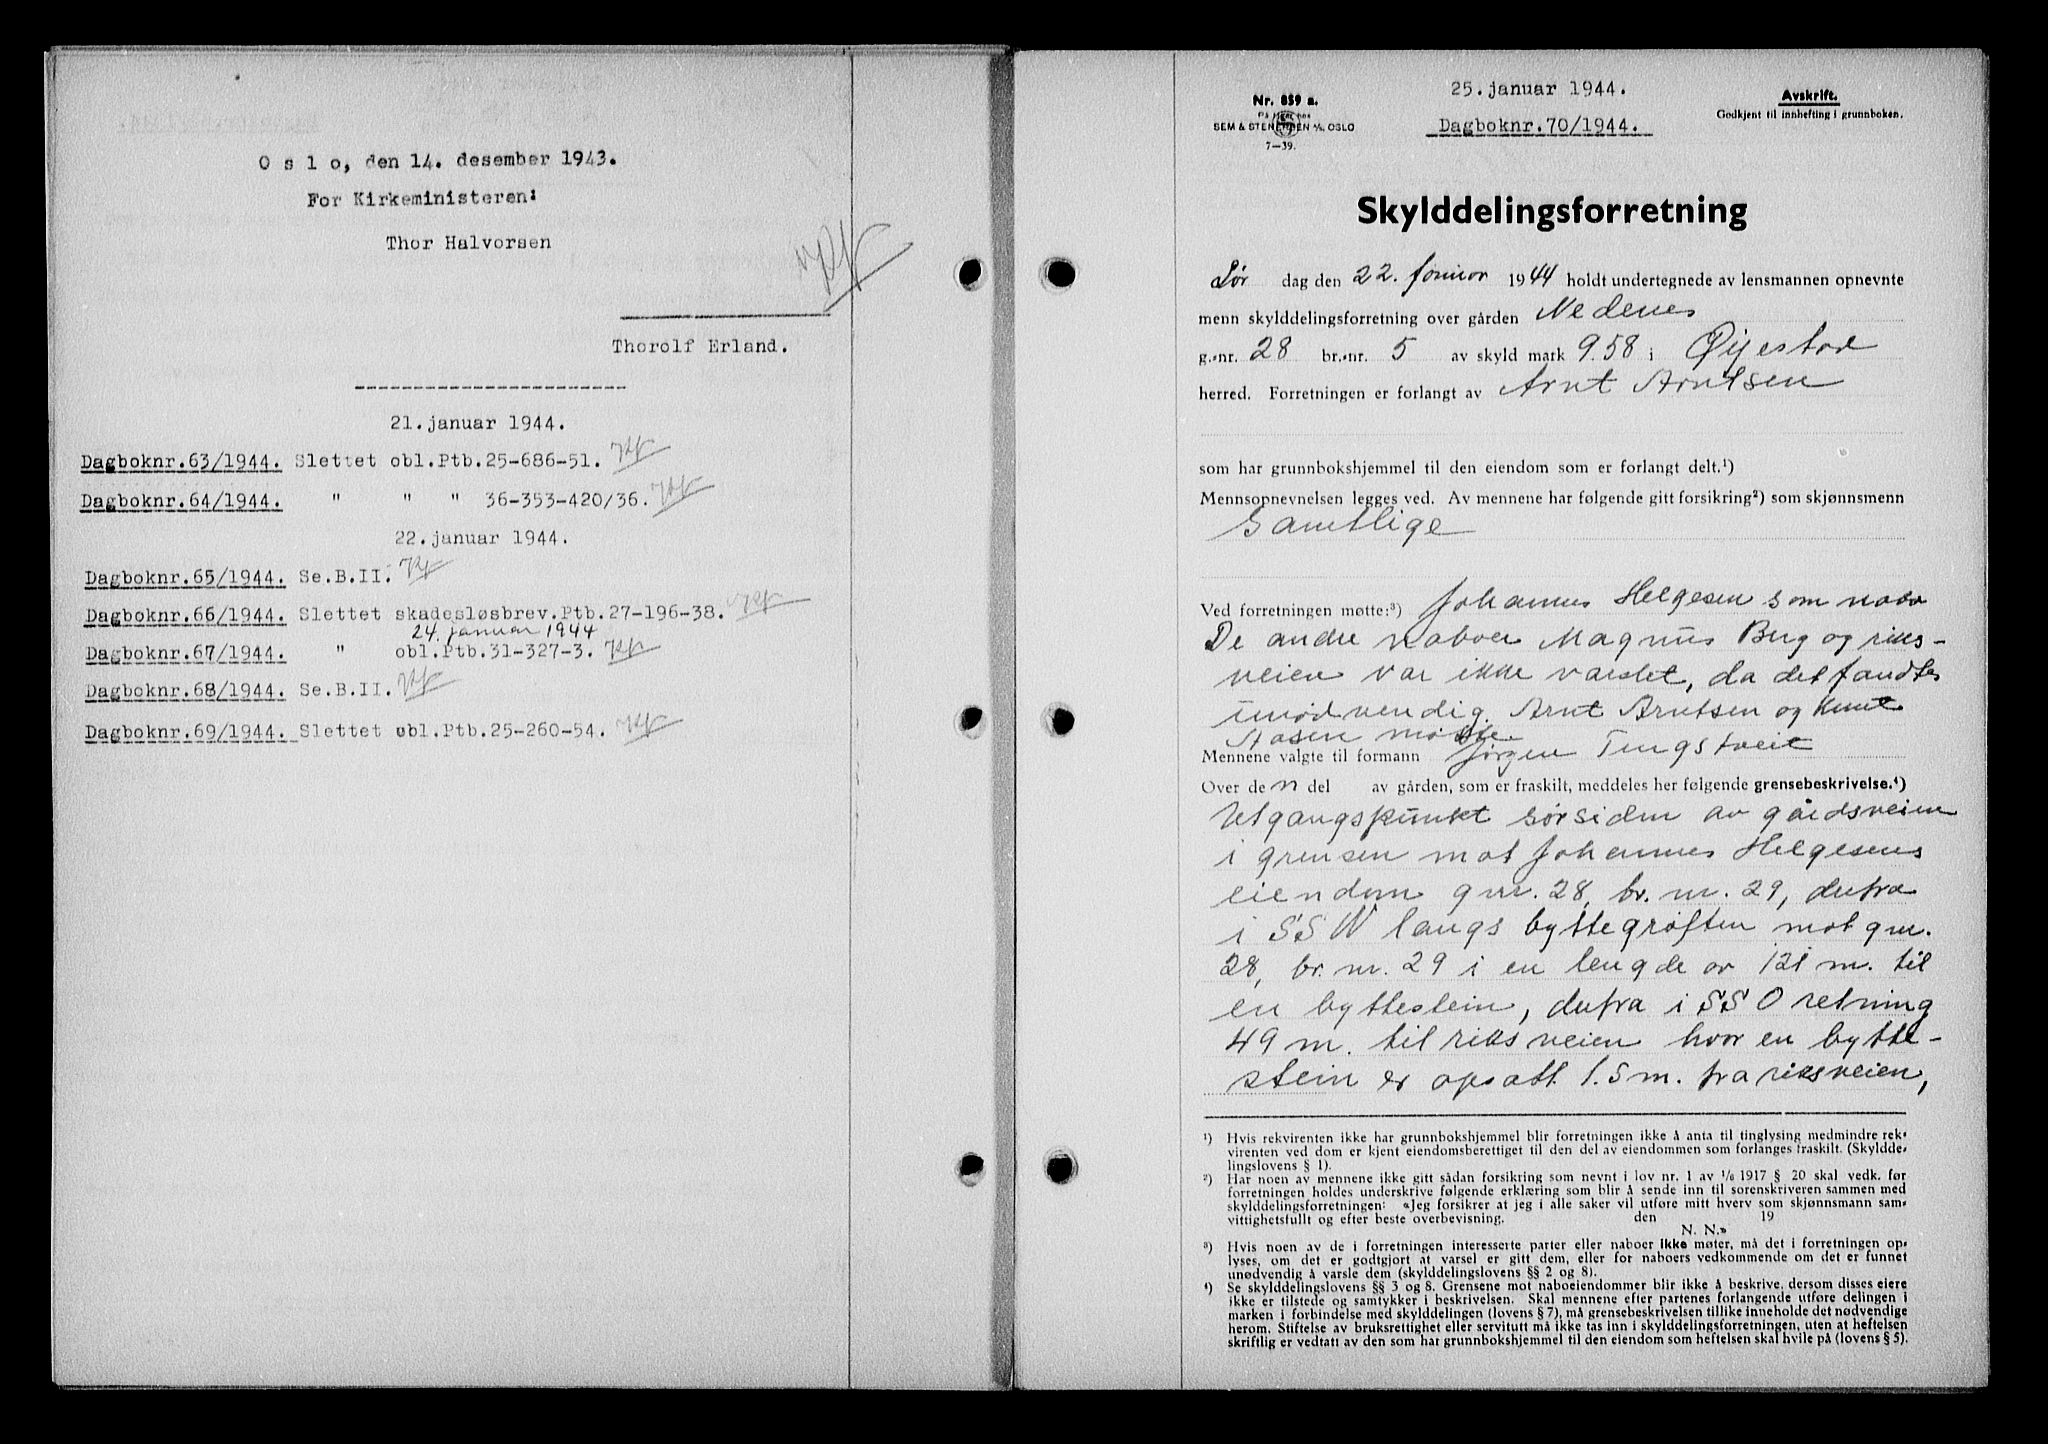 O s l o, den 14. desember 1943.
For Kirkeministeren:
Thor Halvorsen
Thorolf Erland.
-----------------------
21. januar 1944.
Dagboknr. 63/1944. Slettet obl. Ptb. 25-686-51.
Dagboknr. 64/1944. " " " 36-353-420/36.
22. januar 1944.
Dagboknr. 65/1944. Se. B. II.
Dagboknr. 66/1944. Slettet skadesløsbrev. Ptb. 27-196-38.
24. januar 1944
Dagboknr. 67/1944. " obl. Ptb. 31-327-3.
Dagboknr. 68/1944. Se. B. II.
Dagboknr. 69/1944. Slettet obl. Ptb. 25-260-54.
Nr. 859 a.
På lager hos
SEM & STENERSEN A/S. OSLO
7—39.
25. januar 1944.
Dagboknr. 70/1944.
Avskrift.
Godkjent til innhefting i grunnboken.
Skylddelingsforretning
Lør dag den 22. januar 1944 holdt undertegnede av lensmannen opnevnte
menn skylddelingsforretning over gården Nedenes
g.-nr. 28 br.-nr. 5 av skyld mark 9.58 i Øyestad
herred. Forretningen er forlangt av Arnt Arntsen
som har grunnbokshjemmel til den eiendom som er forlangt delt.¹)
Mennsopnevnelsen legges ved. Av mennene har følgende gitt forsikring²) som skjønnsmenn
Samtlige
Ved forretningen møtte:³) Johannes Helgesen som nabo
De andre naboer Magnus Berg og riks-
veien var ikke varslet, da det fandtes
unødvendig. Arnt Arntsen og Knut
Aasen møtte.
Mennene valgte til formann Jørgen Tingstveit
Over den del av gården, som er fraskilt, meddeles her følgende grensebeskrivelse.⁴)
Utgangspunkt sørsiden av gårdsveien
i grensen mot Johannes Helgesens
eiendom gnr. 28, br. nr. 29, derfra
i SSW langs byttegrøften mot gnr.
28, br. nr. 29 i en lengde av 121 m. til
en byttestein, derfra i SSO retning
49 m. til riksveien hvor en bytte-
stein er opsatt 1.5 m. fra riksveien,
¹) Hvis rekvirenten ikke har grunnbokshjemmel blir forretningen ikke å anta til tinglysing medmindre rek-
virenten ved dom er kjent eiendomsberettiget til den del av eiendommen som forlanges fraskilt. (Skyldde-
lingslovens § 1).
²) Har noen av mennene ikke gitt sådan forsikring som nevnt i lov nr. 1 av 1/6 1917 § 20 skal vedk. før
forretningen holdes underskrive følgende erklæring som blir å sende inn til sorenskriveren sammen med
skylddelingsforretningen: «Jeg forsikrer at jeg i alle saker vil utføre mitt hverv som skjønnsmann sam-
vittighetsfullt og efter beste overbevisning. den 19
N. N.»
³) Hvis noen av de i forretningen interesserte parter eller naboer ikke møter, må det i forretningen op-
lyses, om det er godtgjort at varsel er gitt dem, eller for naboers vedkommende om det er funnet
unødvendig å varsle dem (skylddelingslovens §§ 2 og 8).
⁴) Se skylddelingslovens §§ 3 og 8. Grensene mot naboeiendommer blir ikke å beskrive, dersom disses eiere
ikke er tilstede og samtykker i beskrivelsen. Skal mennene efter partenes forlangende utføre delingen i
marken i forbindelse med skylddelingen (lovens § 7), må grensebeskrivelsen tillike inneholde det nødvendige
herom. Stiftelse av bruksrettighet eller servitutt må ikke tas inn i skylddelingsforretningen, uten at heftelsen
skriftlig er vedtatt av den som har grunnbokshjemmel til den eiendom som heftelsen skal hvile på (lovens § 5).